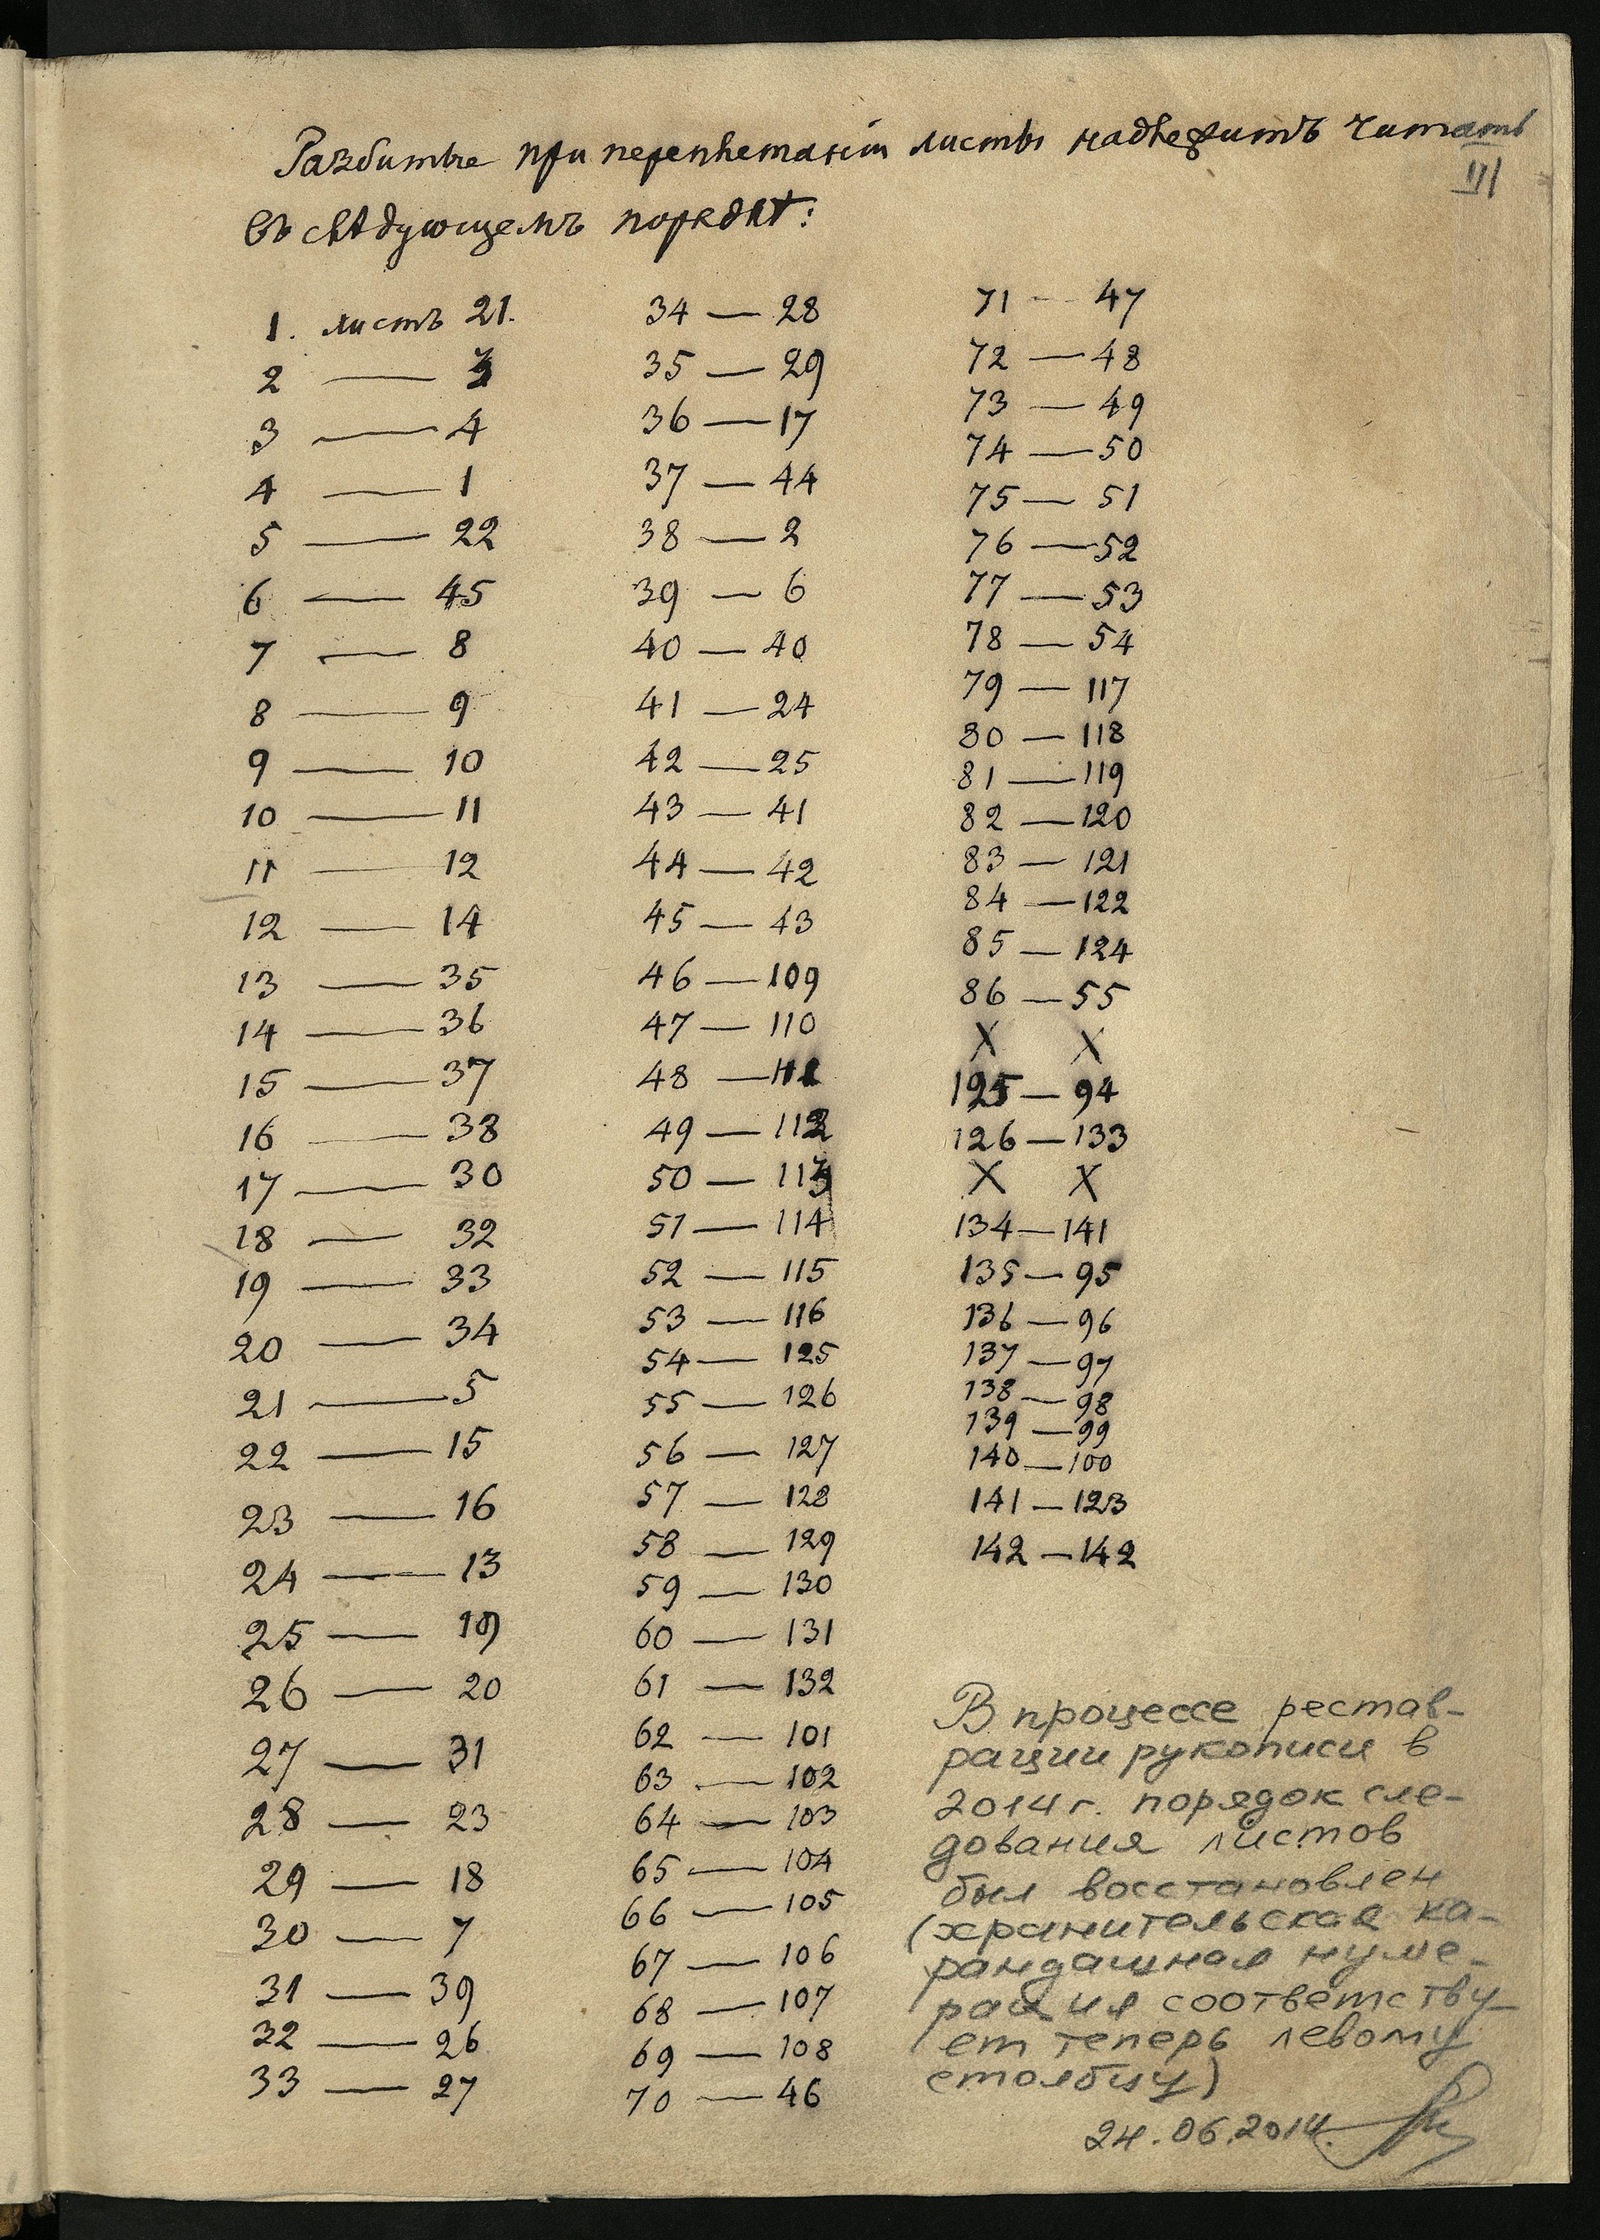 Разбитые при переплетанiи листы надлежитъ читать
III
въ слѣдующемъ порядкѣ:
1. листъ 21.
2 — 3
3 — 4
4 — 1
5 — 22
6 — 45
7 — 8
8 — 9
9 — 10
10 — 11
11 — 12
12 — 14
13 — 35
14 — 36
15 — 37
16 — 38
17 — 30
18 — 32
19 — 33
20 — 34
21 — 5
22 — 15
23 — 16
24 — 13
25 — 19
26 — 20
27 — 31
28 — 23
29 — 18
30 — 7
31 — 39
32 — 26
33 — 27
34 — 28
35 — 29
36 — 17
37 — 44
38 — 2
39 — 6
40 — 40
41 — 24
42 — 25
43 — 41
44 — 42
45 — 43
46 — 109
47 — 110
48 — 111
49 — 112
50 — 113
51 — 114
52 — 115
53 — 116
54 — 125
55 — 126
56 — 127
57 — 128
58 — 129
59 — 130
60 — 131
61 — 132
62 — 101
63 — 102
64 — 103
65 — 104
66 — 105
67 — 106
68 — 107
69 — 108
70 — 46
71 — 47
72 — 48
73 — 49
74 — 50
75 — 51
76 — 52
77 — 53
78 — 54
79 — 117
80 — 118
81 — 119
82 — 120
83 — 121
84 — 122
85 — 124
86 — 55
X X
125 — 94
126 — 133
X X
134 — 141
135 — 95
136 — 96
137 — 97
138 — 98
139 — 99
140 — 100
141 — 123
142 — 142
В процессе рестав-
рации рукописи в
2014 г. порядок сле-
дования листов
был восстановлен
(хранительская ка-
рандашная нуме-
рация соответству-
ет теперь левому
столбцу)
24.06.2014.